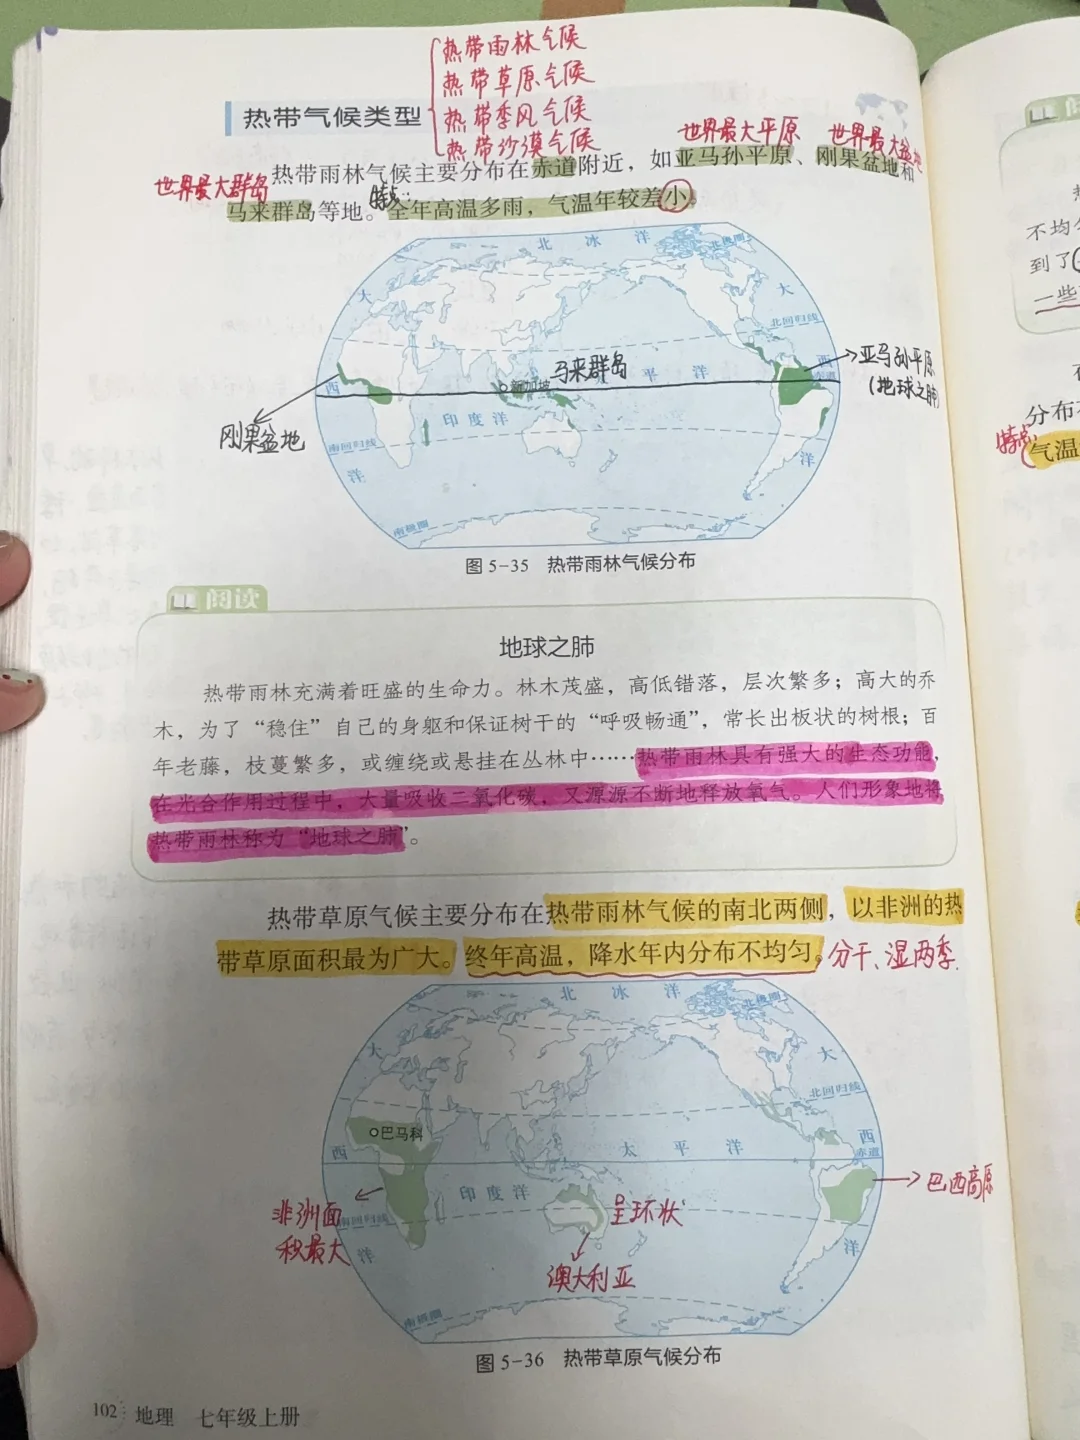 热带雨林气候
热带草原气候
热带季风气候
热带沙漠气候
热带气候类型
世界最大平原 世界最大盆地
热带雨林气候主要分布在赤道附近，如亚马孙平原、刚果盆地和
世界最大群岛
特点：
马来群岛等地。全年高温多雨，气温年较差小。
北冰洋
北极圈
大
大
北回归线
西
西
赤道
亚马孙平原
(地球之肺)
马来群岛
新加坡
太平洋
印度洋
刚果盆地
南回归线
洋
洋
南极圈
图 5-35 热带雨林气候分布
阅读
地球之肺
热带雨林充满着旺盛的生命力。林木茂盛，高低错落，层次繁多；高大的乔
木，为了“稳住”自己的身躯和保证树干的“呼吸畅通”，常长出板状的树根；百
年老藤，枝蔓繁多，或缠绕或悬挂在丛林中……热带雨林具有强大的生态功能，
在光合作用过程中，大量吸收二氧化碳，又源源不断地释放氧气。人们形象地将
热带雨林称为“地球之肺”。
热带草原气候主要分布在热带雨林气候的南北两侧，以非洲的热
带草原面积最为广大。终年高温，降水年内分布不均匀。分干、湿两季.
北冰洋
北极圈
大
大
北回归线
巴马科
西
西
赤道
太平洋
印度洋
巴西高原
非洲面
积最大
南回归线
呈环状
澳大利亚
洋
洋
南极圈
图 5-36 热带草原气候分布
102 地理 七年级上册
阅
不均
到了
一些
分布
特点：
气温